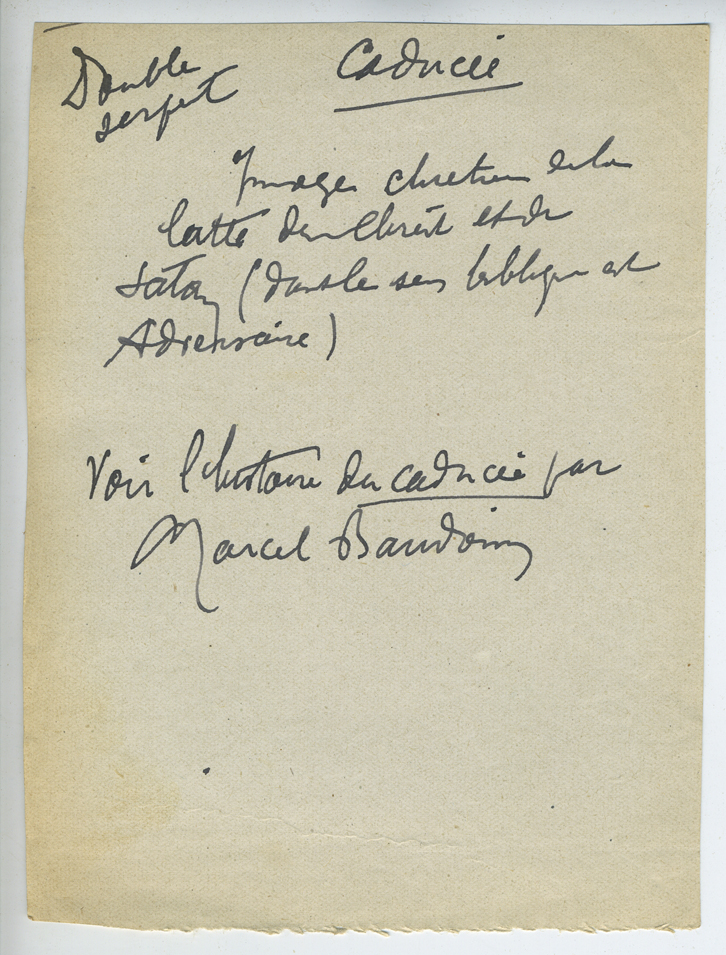 Double
serpent
Caducée
Image chrétien de la
lutte du Christ et de
Satan (dans le sens biblique est
Adversaire)
Voir l'histoire du caducée par
Marcel Baudouin